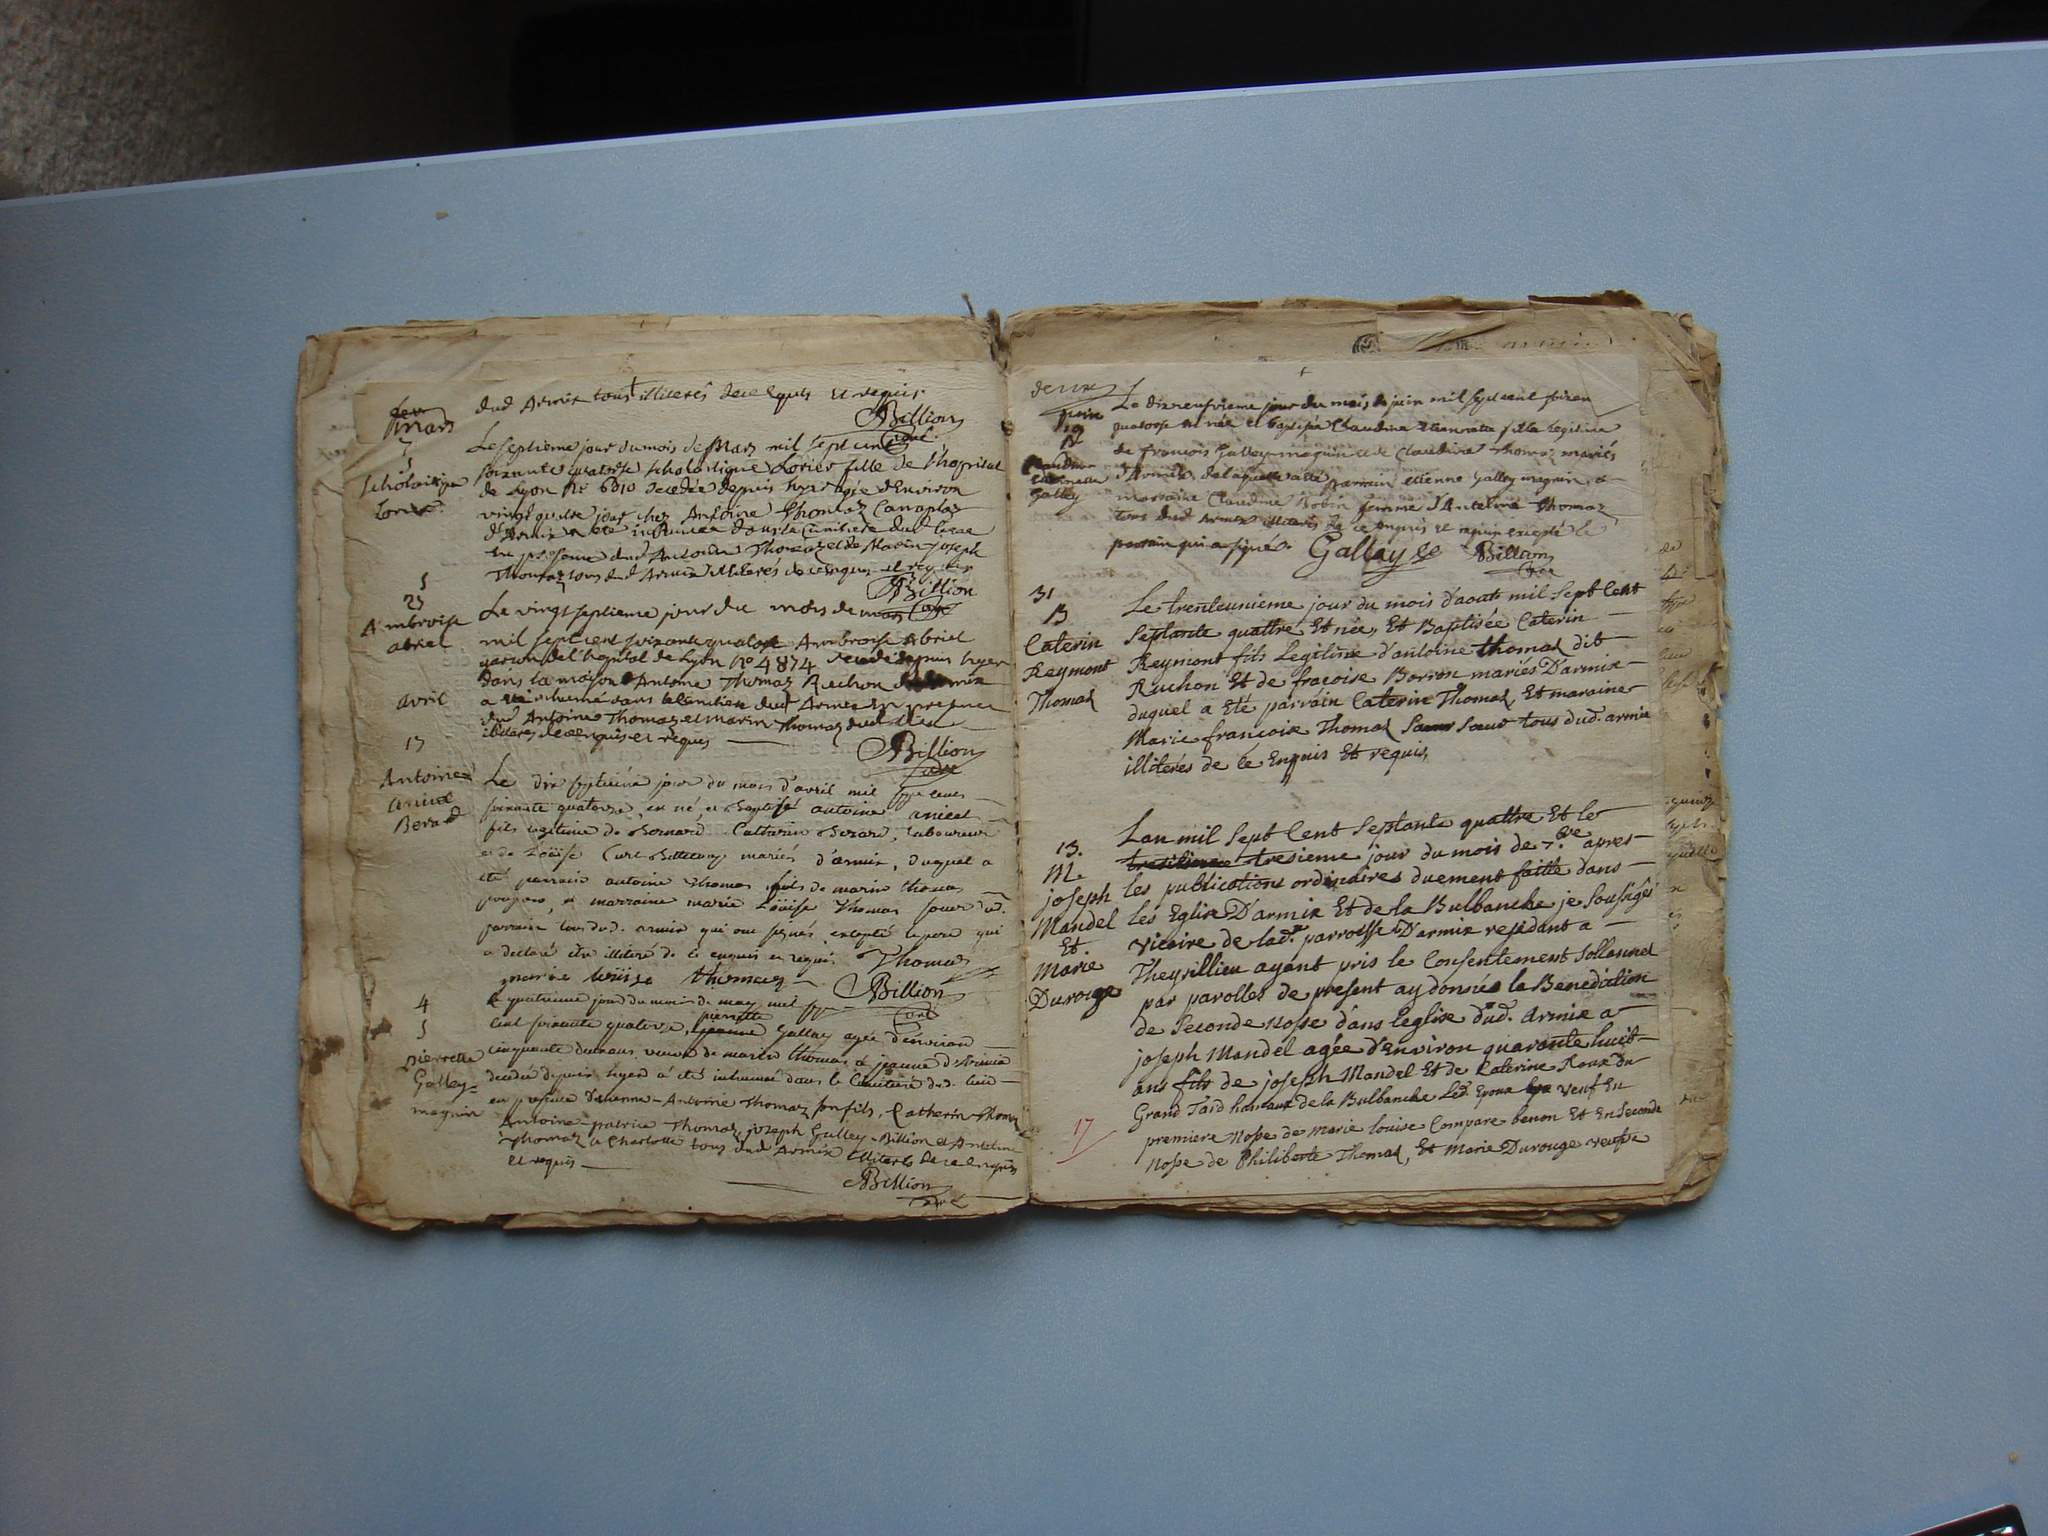 dud Armix tous illiterés de ce enquis et requis.
Billion
Curé
mars
7
S
Scholastique
Lorier
Le septieme jour du mois de Mars mil sept cent
soixante quatorse Scholastique Lorier fille de l'hospital
de Lyon No 6310 decedée depuis hyer agée d'Environ
vingt quatre jour chez Antoine Thomaz Canaplaz
d'Armix a été inhumée dans le Cimitiere dud lieu
en presence dud Antoine Thomaz et de Marin joseph
Thomaz tous dud Armix illiterés de ce enquis et requis
Billion
Curé
S
25
Ambroise
abriel
Le vingt septieme jour du mois de mars
mil sept cent soixante quatorse Ambroise Abriel
garson de l'hopital de Lyon No 4874 decedé depuis hyer
dans la maison d'Antoine Thomaz Ruchon d'Armix
a été inhumé dans le cimitiere dud Armix en presence
dud Antoine Thomaz et marin Thomaz dud lieu
illiteres de ce enquis et requis
Billion
Curé
avril
17
Antoine
aniced
Berard
Le dix septiéme jour du mois d'avril mil sept cent
soixante quatorze, est né, et Baptisé antoine aniced
fils legitime de Bernard Catherin Berard, laboureur
et de Loüise Curt Billion mariés d'armix, duquel a
été parrain antoine thomas fils de marin thomas
et marraine marie Loüise Thomas soeur dud.
parrain tous dud. armix qui ont signés excepté le pere qui
a declaré etre illiteré de ce enquis et requis Thomas
marie loüise thomaz
Billion
Curé
4
S
pierrette
Galley
magnin
Le quatrieme jour du mois de may mil sept
cent soixante quatorze, pierrette Gallay agée d'environ
cinquante deux ans veuve de marin thomas d'Armix
decedée depuis hyer a été inhumée dans le Cimitiere dud. lieu
en presence d'Etienne-Antoine Thomaz son fils, Catherin Thomaz
Antoine-patrice Thomaz, joseph Galley-Billion et Antelme
Thomaz a Charlotte tous dud Armix illiterés de ce enquis
et requis
Billion
Curé
juin
19
B
Claudine
Etiennette
Galley
Le dixneufvieme jour du mois de juin mil sept cent soixante
quatorse est née et baptisée Claudine Etiennette fille legitime
de françois Galley-magnin et de Claudine Thomaz mariés
d'Armix, de laquelle a été parrain etienne Galley magnin, et
marraine Claudine Robin femme d'Antelme Thomaz
tous dud Armix illiterés de ce enquis et requis excepté le
parrain qui a signé.
Gallay
Billion
Curé
31
B
Caterin
Reymont
Thomad
Le trenteunieme jour du mois d'aoust mil Sept Cent
Septante quattre Et née, Et Baptisée Caterin
Reymont fils Legitime d'antoine thomad dit
Ruchon Et de fracoise Borron mariés D'armix
duquel a Eté parrain Caterin Thomad, Et maraine
Marie francoise Thomad Soeur tous dud. armix
illiterés de ce Enquis Et requis,
13.
M.
joseph
Mandel
Et
Marie
Durouge
Lan mil Sept Cent Septante quattre Et le
tresieme jour du mois de 7.bre apres
les publications ordinaires duement faitte dans
les Eglise D'armix Et de la Bulbanche je Soussigés
Vicaire de lad.e parroisse D'armix residant a
Theyzillieu ayant pris le Consentement Sollannel
par parolles de present ay donnée la Benediction
de Seconde nosse dans leglise dud. Armix a
joseph Mandel agée d'Environ quarante huit
ans fils de joseph Mandel Et de Caterine Roux du
Grand Tard hameau de la Bulbanche Led. Epoux veuf En
premiere nosse de marie louise Compare benon Et En Seconde
nosse de Philiberte Thomad, Et Marie Durouge veufve
17